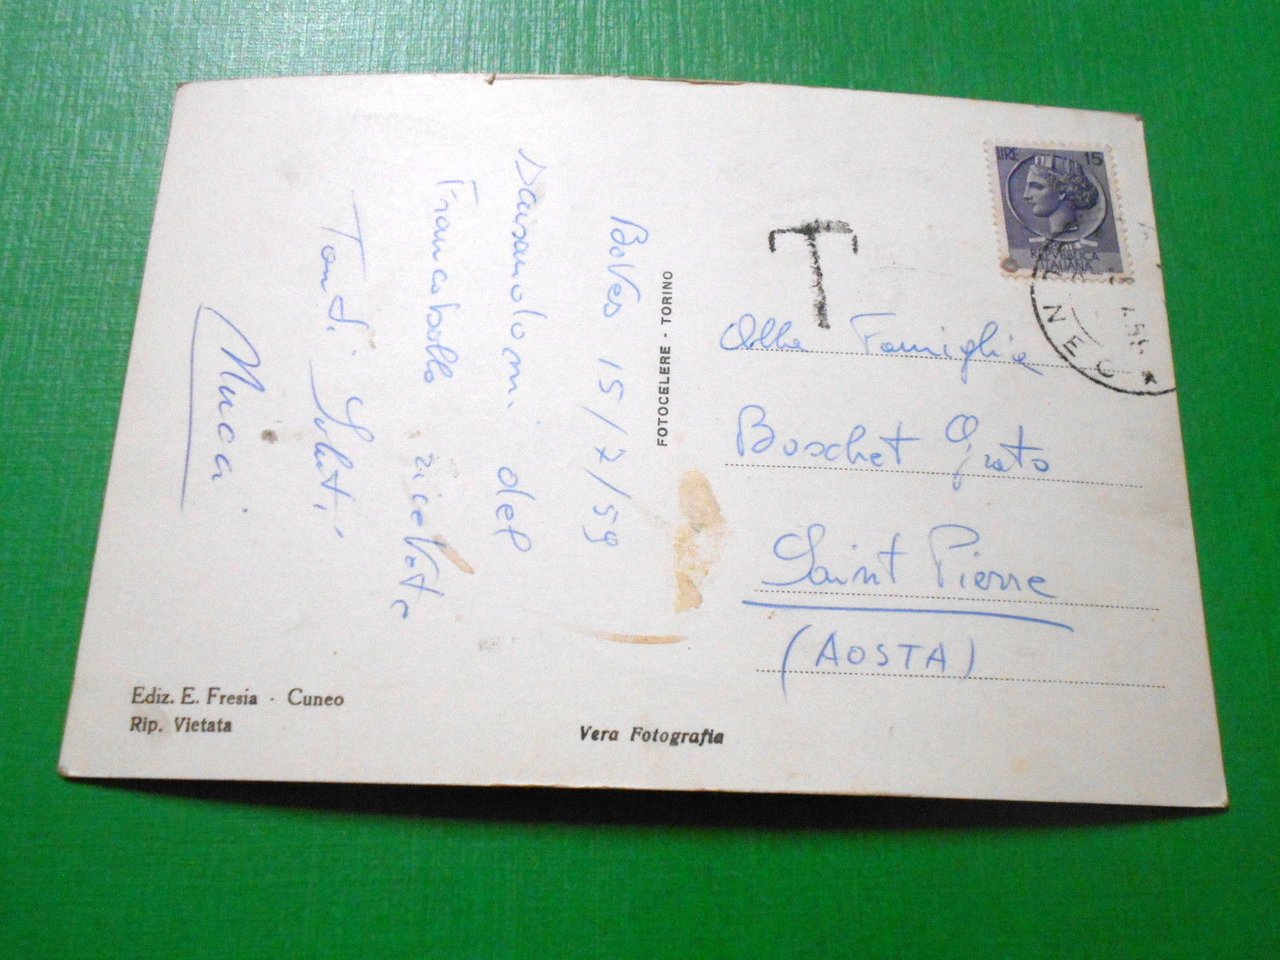 Boves 15/7/59
Dausandomi del
Francobollo ricevete
Tanti Saluti
Nucci
FOTOCELERE - TORINO
LIRE 15
REPVBBLICA
ITALIANA
T
Alla Famiglia
Boschet Grato
Saint Pierre
(AOSTA)
Ediz. E. Fresia - Cuneo
Rip. Vietata
Vera Fotografia